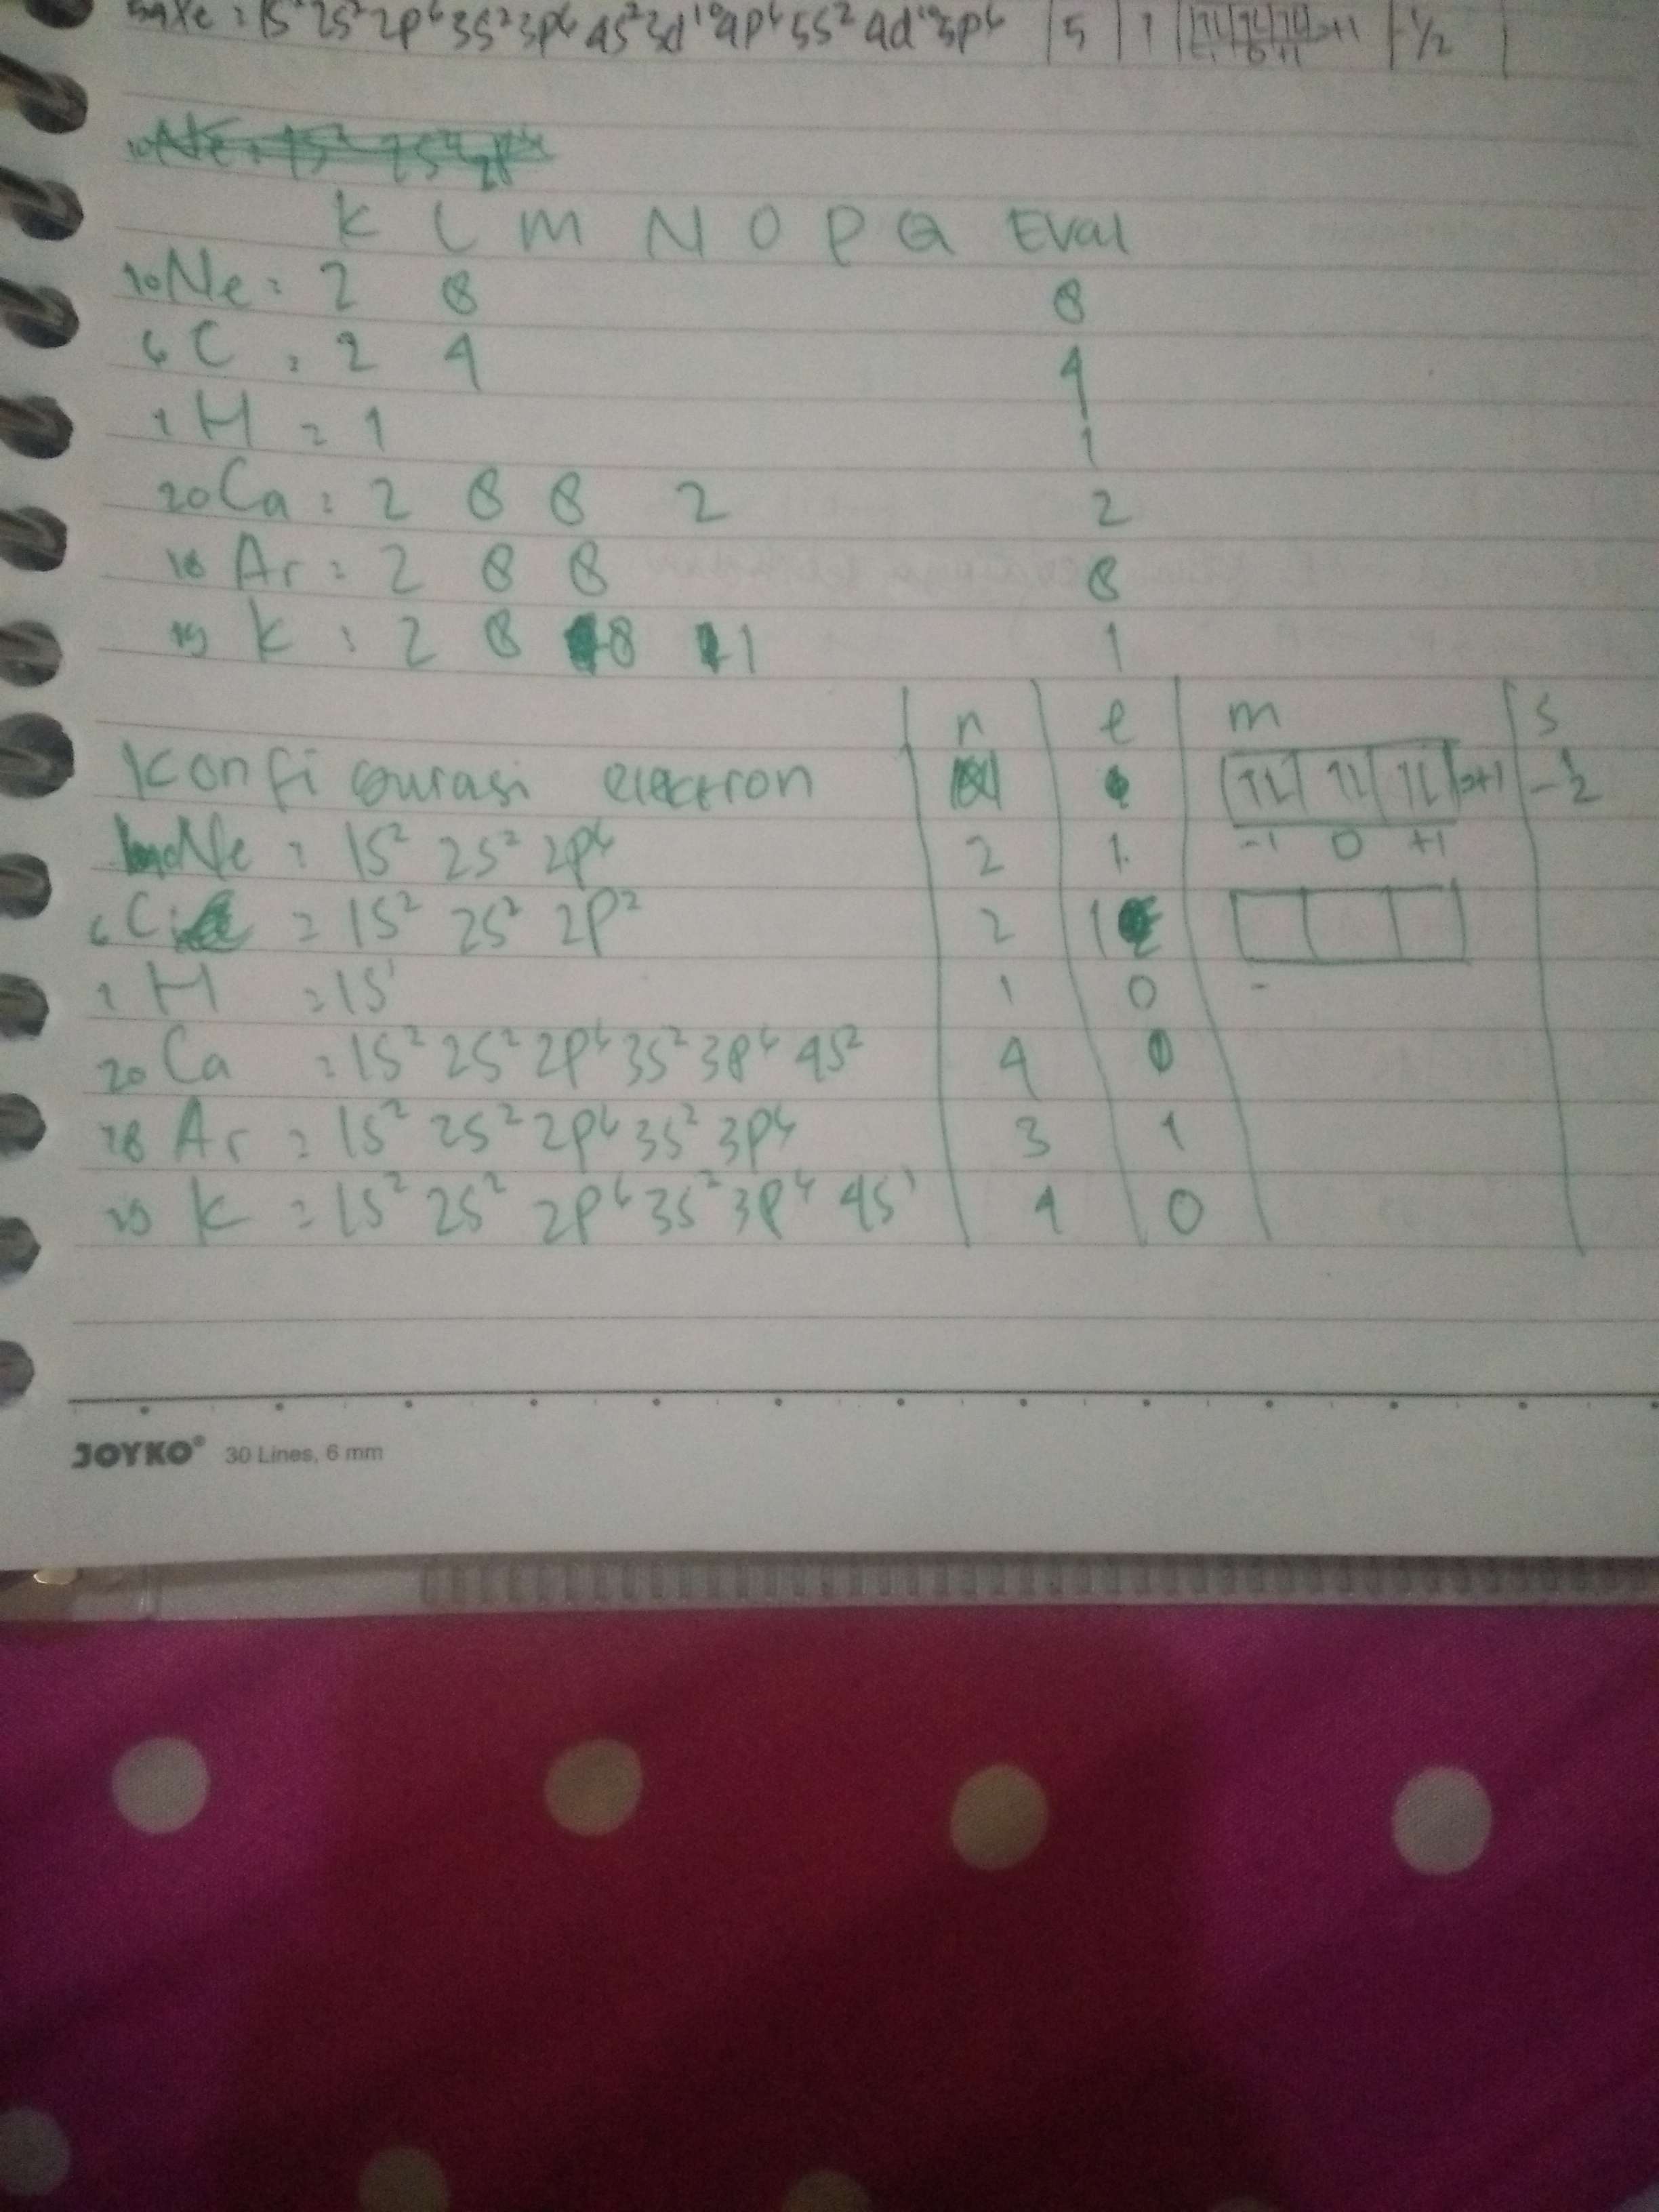 54Xe = 1s² 2s² 2p⁶ 3s² 3p⁶ 4s² 3d¹⁰ 4p⁶ 5s² 4d¹⁰ 5p⁶ | 5 | 1 | 1L 1L 1L =+1 | -1/2
K L M N O P Q Eval
10Ne = 2 8 8
6C = 2 4 4
1H = 1 1
20Ca = 2 8 8 2 2
18Ar = 2 8 8 8
19K = 2 8 8 1 1
n l m s
Konfigurasi electron 1L 1L 1L =+1 -1/2
10Ne = 1s² 2s² 2p⁶ 2 1 -1 0 +1
6C = 1s² 2s² 2p² 2 1
1H = 1s¹ 1 0 -
20Ca = 1s² 2s² 2p⁶ 3s² 3p⁶ 4s² 4 0
18Ar = 1s² 2s² 2p⁶ 3s² 3p⁶ 3 1
19K = 1s² 2s² 2p⁶ 3s² 3p⁶ 4s¹ 4 0
JOYKO® 30 Lines, 6 mm